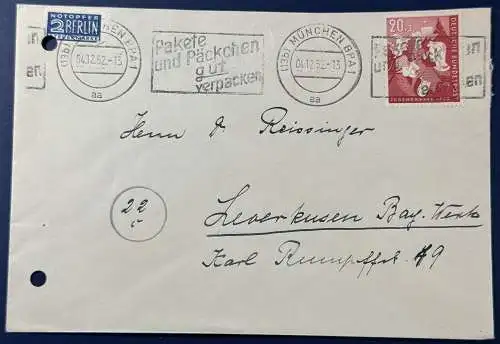 NOTOPFER
2 BERLIN
STEUERMARKE
(13b) MÜNCHEN BPA 1
04.12.52.-13
aa
Pakete
und Päckchen
gut
verpacken
(13b) MÜNCHEN BPA 1
04.12.52.-13
aa
20
DEUTSCHE BUNDESPOST
JUGENDMARKE 1952
en
Herrn Reissinger
22
c
Leverkusen Bay. Werk
Karl Rumpffstr. 49